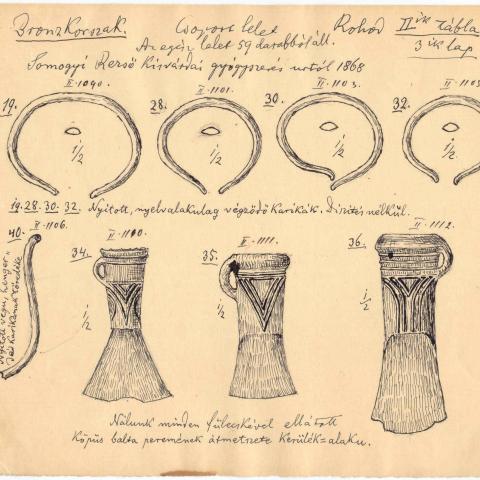 Bronzkorszak. Csoport lelet Rohod II ik tábla
Az egész lelet 59 darabból áll. 3 ik lap
Somogyi Rezső kisvárdai gyógyszerész urtól 1868
II·1090. II·1101. II·1103. II·1105
19. 28. 30. 32.
1/2 1/2 1/2 1/2
19. 28. 30. 32. Nyitott, nyelvalakulag végződő karikák. Diszités nélkül.
40. II·1106. 34. II·1110. 35. II·1111. 36. II·1112.
Nyitott végü, henger
karikának töredéke
1/2 1/2 1/2
Nálunk minden fülecskével ellátott
Köpüs balta peremének átmetszete kerülék=alaku.